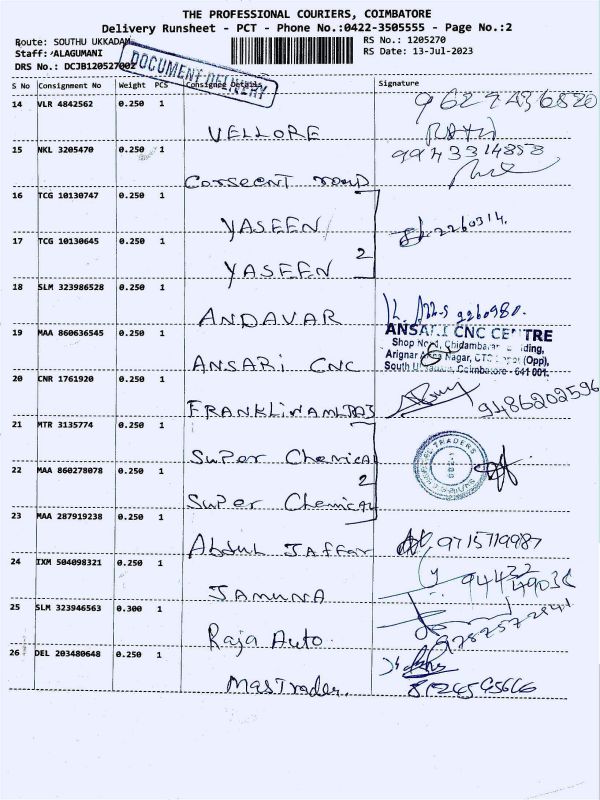 THE PROFESSIONAL COURIERS, COIMBATORE
Delivery Runsheet - PCT - Phone No.:0422-3505555 - Page No.:2
Route: SOUTHU UKKADAM
Staff: ALAGUMANI
DRS No.: DCJB120527002
RS No.: 1205270
RS Date: 13-Jul-2023
DOCUMENT DELIVERY
S No Consignment No Weight PCS Consignee Details Signature
14 VLR 4842562 0.250 1 VELLORE
15 NKL 3205470 0.250 1 9943314858
16 TCG 10130747 0.250 1 YASEEN
2260314.
17 TCG 10130645 0.250 1 YASEEN
2
18 SLM 323986528 0.250 1 ANDAVAR
2260980.
19 MAA 860636545 0.250 1 ANSARi CNC
ANSARI CNC CENTRE
South Ukkadam, Coimbatore - 641 001.
20 CNR 1761920 0.250 1 9486202596
21 MTR 3135774 0.250 1 SuPer Chemical
2
22 MAA 860278078 0.250 1 SuPer Chemical
TRADERS
23 MAA 287919238 0.250 1 Abdul Jaffar 9715719987
24 IXM 504098321 0.250 1 JAMUNA
94432
25 SLM 323946563 0.300 1 Raja Auto.
26 DEL 203480648 0.250 1 MasTrader.